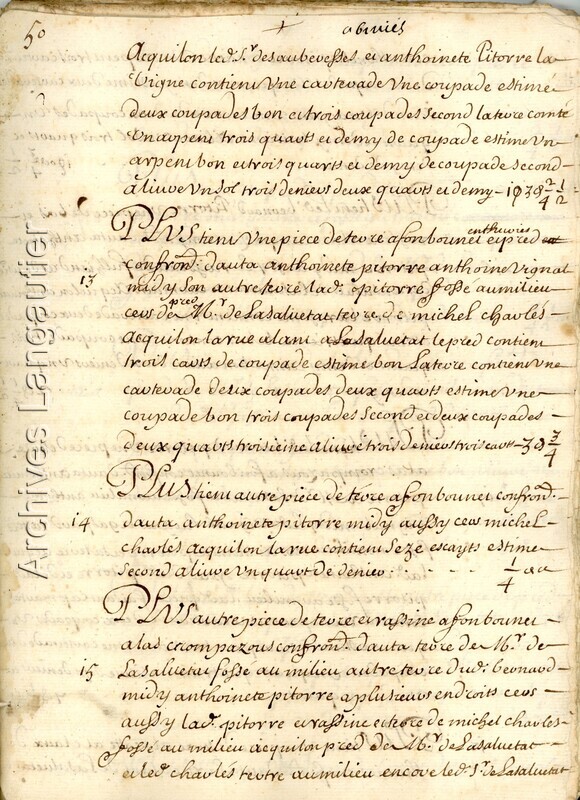 50
abiuiés
Acquilon led. Sr. desaubevesses et anthoinete Pitorre la
Vigne contient Vne cartevade Vne coupade estimé
deux coupades bon et trois coupades second la terre comté
Vn arpent trois quarts et demy de coupade estime Vn
arpent bon et trois quarts et demy de coupade second
aliure Vn sol trois deniers deux quarts et demy
PLUS tient Vne piece de terre afonbounet et pred
confrond. dauta anthoinete pitorre anthoine vignal
13 midy son autre terre lad. pitorre fossé au milieu
cers pred de Mr. de Lasaluetat terre de michel charlés
Acquilon la rue alant a Lasaluetat le pred contient
trois carts de coupade estime bon La terre contient Vne
cartevade deux coupades deux quarts estime Vne
coupade bon trois coupades Second et deux coupades
deux quarts troisieme aliuré trois deniers trois carts 3 d 3/4
PLUS tient autre piece de terre afonbounet confrond.
14 dauta anthoinete pitorre midy aussy cers michel
charlés acquilon la rue contient seze escayts estime
second aliure Vn quart de denier 1/4
PLUS autre piece de terre et rassine afonbounet
alas crompazous confrond. dauta terre de Mr. de
15 Lasaluetat fossé au milieu autre terre dud. bernard
midy anthoinete pitorre a plusieurs endroits cers
aussy lad. pitorre et rassine et terre de michel charles
fossé au milieu acquilon pred de Mr. de Lasaluetat
et led. charlés tertre au milieu encore led. Sr. de Lasaluetat
Archives Langautier